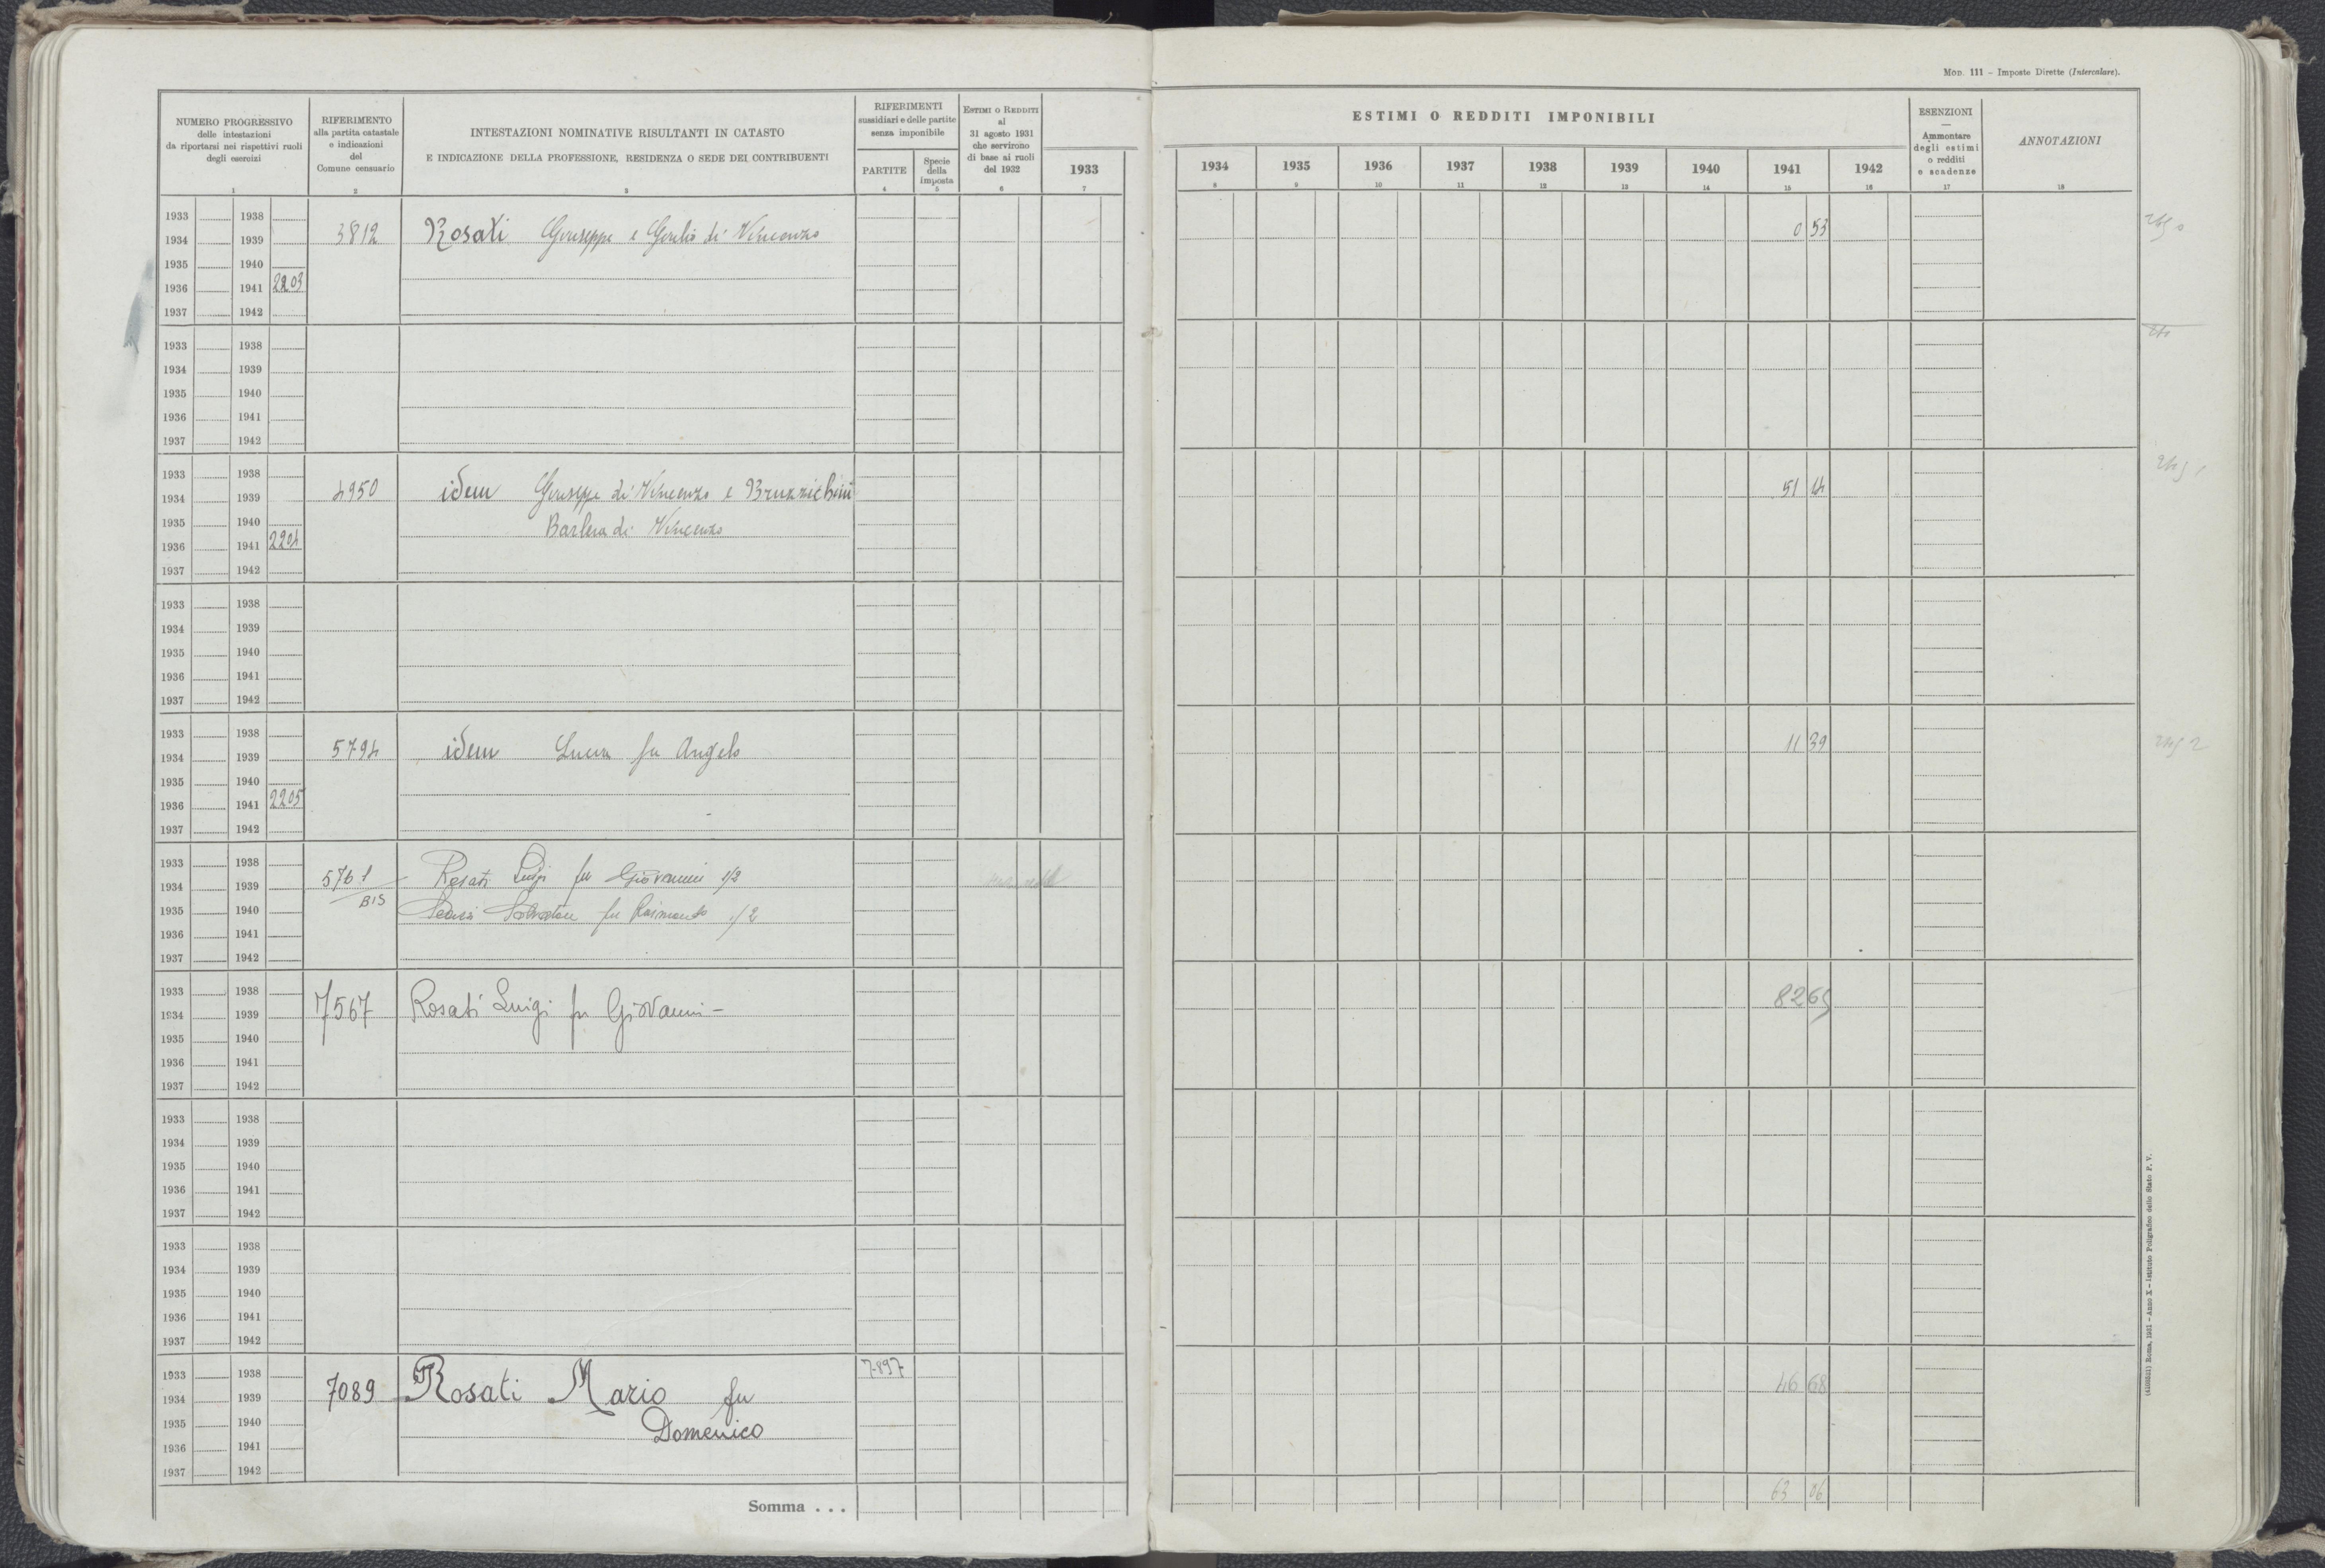 MOD. 111 – Imposte Dirette (Intercalare).
NUMERO PROGRESSIVO
delle intestazioni
da riportarsi nei rispettivi ruoli
degli esercizi
1
RIFERIMENTO
alla partita catastale
e indicazioni
del
Comune censuario
2
INTESTAZIONI NOMINATIVE RISULTANTI IN CATASTO
E INDICAZIONE DELLA PROFESSIONE, RESIDENZA O SEDE DEI CONTRIBUENTI
3
RIFERIMENTI
sussidiari e delle partite
senza imponibile
PARTITE
4
Specie
della
imposta
5
ESTIMI O REDDITI
al
31 agosto 1931
che servirono
di base ai ruoli
del 1932
6
1933
7
ESTIMI O REDDITI IMPONIBILI
1934 1935 1936 1937 1938 1939 1940 1941 1942
8 9 10 11 12 13 14 15 16
ESENZIONI
—
Ammontare
degli estimi
o redditi
e scadenze
17
ANNOTAZIONI
18
1933 1938
1934 1939 3812 Rosati Giuseppe e Giulio di Vincenzo 0 53
1935 1940
1936 1941 2203
1937 1942
1933 1938
1934 1939
1935 1940
1936 1941
1937 1942
1933 1938
1934 1939 4950 idem Giuseppe di Vincenzo e Bruzzichini 51 14
1935 1940 Barbera di Vincenzo
1936 1941 2204
1937 1942
1933 1938
1934 1939
1935 1940
1936 1941
1937 1942
1933 1938
1934 1939 5794 idem Luca fu Angelo 11 39
1935 1940
1936 1941 2205
1937 1942
1933 1938
1934 1939 5761 Rosati Luigi fu Giovanni 1/2
1935 1940 BIS fu Raimondo 1/2
1936 1941
1937 1942
1933 1938
1934 1939 7567 Rosati Luigi fu Giovanni – 8265
1935 1940
1936 1941
1937 1942
1933 1938
1934 1939
1935 1940
1936 1941
1937 1942
1933 1938
1934 1939
1935 1940
1936 1941
1937 1942
1933 1938 7897
1934 1939 7089 Rosati Mario fu 46 68
1935 1940 Domenico
1936 1941
1937 1942
Somma . . . 63 06
Roma, 1931 – Anno X – Istituto Poligrafico dello Stato P. V.